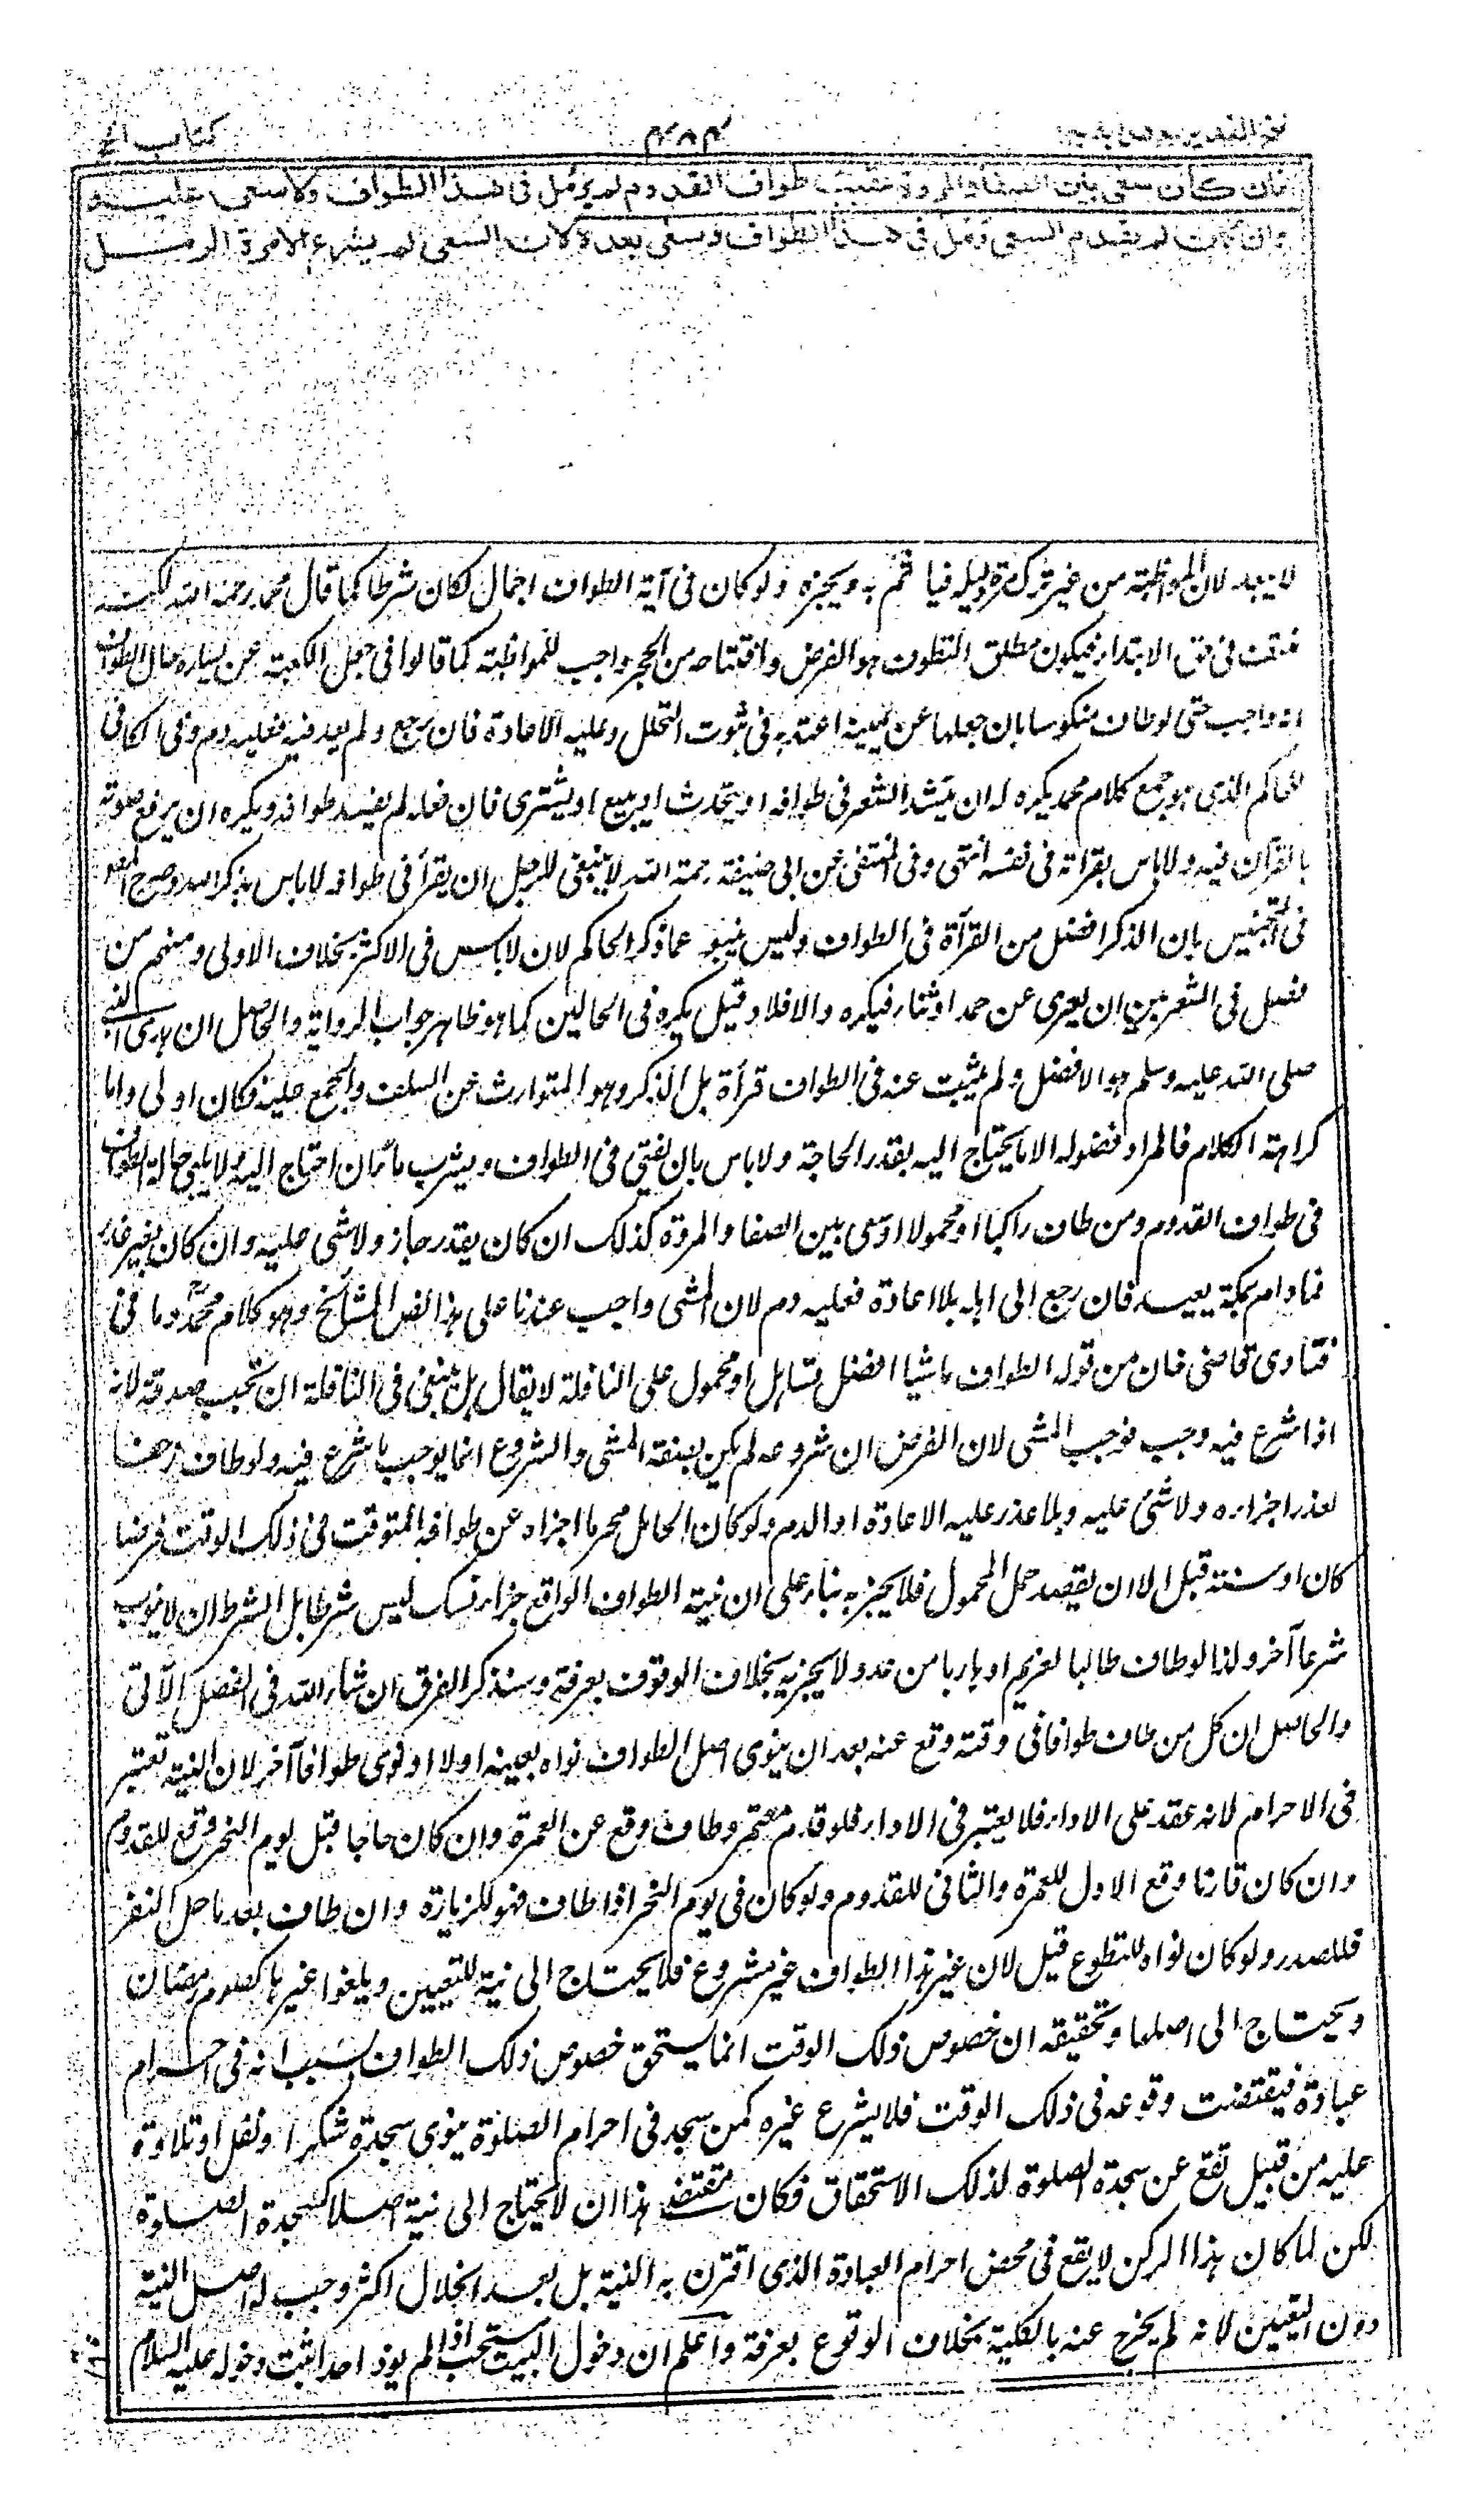 كتاب الحج
فان كان سعى بين الصفا والمروة عقيب طواف القدوم لم يرمل فى هذا الطواف ولا سعى عليه
وان كان لم يقدم السعى رمل فى هذا الطواف وسعى بعده لان السعى لم يشرع الا مرة والرمل
لا يبعد لان المواظبة من غير ترك مرة دليله فياثم به ويجزه ولو كان فى آية الطواف اجمال لكان شرطا كما قال محمد رحمه الله لكنه
منتف فى حق الابتداء فيكون مطلق التطوف هو الفرض وافتتاحه من الحجر واجب للمواظبة كما قالوا فى جعل الكعبة عن يساره حال الطواف
انه واجب حتى لو طاف منكوسا بان جعلها عن يمينه اعتد به فى ثبوت التحلل وعليه الاعادة فان رجع ولم يعد فيه فعليه دم وفى الكافى
للحاكم الذى هو جمع كلام محمد يكره له ان ينشد الشعر فى طوافه او يتحدث او يبيع او يشترى فان فعله لم يفسد طوافه ويكره ان يرفع صوته
بالقرآن فيه ولا باس بقرأته فى نفسه انتهى وفى المنتقى عن ابى حنيفة رحمة الله لا ينبغى للرجل ان يقرأ فى طوافه لا باس بذكر الله وصرح المصنف
فى التجنيس بان الذكر افضل من القرآة فى الطواف وليس ينبو عما ذكر الحاكم لان لا باس فى الاكثر بخلاف الاولى ومنهم من
فصل فى الشعر بين ان يعرى عن حمد او ثناء فيكره والا فلا وقيل يكره فى الحالين كما هو ظاهر جواب الرواية والحاصل ان هدى النبى
صلى الله عليه وسلم هو الافضل ولم يثبت عنه فى الطواف قرأة بل الذكر وهو المتوارث عن السلف والمجمع عليه فكان اولى واما
كراهة الكلام فالمراد فضوله الا ما يحتاج اليه بقدر الحاجة ولا باس بان يفتى فى الطواف ويشرب ماء ان احتاج اليه ولا يلبى حالة الطواف
فى طواف القدوم ومن طاف راكبا او محمولا او سعى بين الصفا والمروة كذلك ان كان بعذر جاز ولا شى عليه وان كان بغير عذر
فما دام بمكة يعيد فان رجع الى اهله بلا اعادة فعليه دم لان المشى واجب عندنا على هذا نص المشائخ وهو كلام محمد وما فى
فتاوى قاضى خان من قوله الطواف ماشيا افضل تساهل او محمول على النافلة لا يقال بل ينبغى فى النافلة ان تجب صدقة لانه
اذا شرع فيه وجب فوجب المشى لان الفرض ان شروعه لم يكن بصفة المشى والشروع انما يوجب ما شرع فيه ولو طاف زحفا
لعذر اجزاه ولا شئ عليه وبلا عذر عليه الاعادة او الدم ولو كان الحامل محرما اجزاه عن طوافه الموقت فى ذلك الوقت فرضا
كان او سنة قيل الا ان يقصد حمل المحمول فلا يجزيه بناء على ان نية الطواف الواقع جزء نسك ليس شرطا بل الشرط ان لا ينوى
شرعا آخر ولذا لو طاف طالبا لغريم او هاربا من عدو لا يجزيه بخلاف الوقوف بعرفة وسنذكر الفرق ان شاء الله فى الفصل الآتى
والحاصل ان كل من طاف طوافا فى وقته وقع عنه بعد ان ينوى اصل الطواف نواه بعينه اولا او نوى طوافا آخر لان النية تعتبر
فى الاحرام لانه عقد على الاداء فلا يعتبر فى الاداء فلو قدم معتمر وطاف وقع عن العمرة وان كان حاجا قبل يوم النحر وقع للقدوم
وان كان قارنا وقع الاول للعمرة والثانى للقدوم ولو كان فى يوم النحر اذا طاف فهو للزيارة وان طاف بعد ما حل النفر
فللصدر ولو كان نواه للتطوع قيل لان غير هذا الطواف غير مشروع فلا يحتاج الى نية للتعيين ويلغوا غيرها كصوم رمضان
ويحتاج الى اصلها وتحقيقه ان خصوص ذلك الوقت انما يستحق خصوص ذلك الطواف بسبب انه فى احرام
عبادة فيقتضت وقوعه فى ذلك الوقت فلا يشرع غيره كمن سجد فى احرام الصلوة ينوى سجدة شكرا او نفل او تلاوة
عليه من قبيل تقع عن سجدة الصلوة لذلك الاستحقاق فكان مقتضى هذا ان لا يحتاج الى نية اصلا كسجدة الصلوة
لكن لما كان هذا الركن لا يقع فى محض احرام العبادة الذى اقترن به النية بل بعد انحلال اكثر وجب له اصل النية
دون التعيين لانه لم يخرج عنه بالكلية بخلاف الوقوع بعرفة واعلم ان دخول البيت مستحب اذا لم يوذ احدا ثبت دخوله عليه السلام